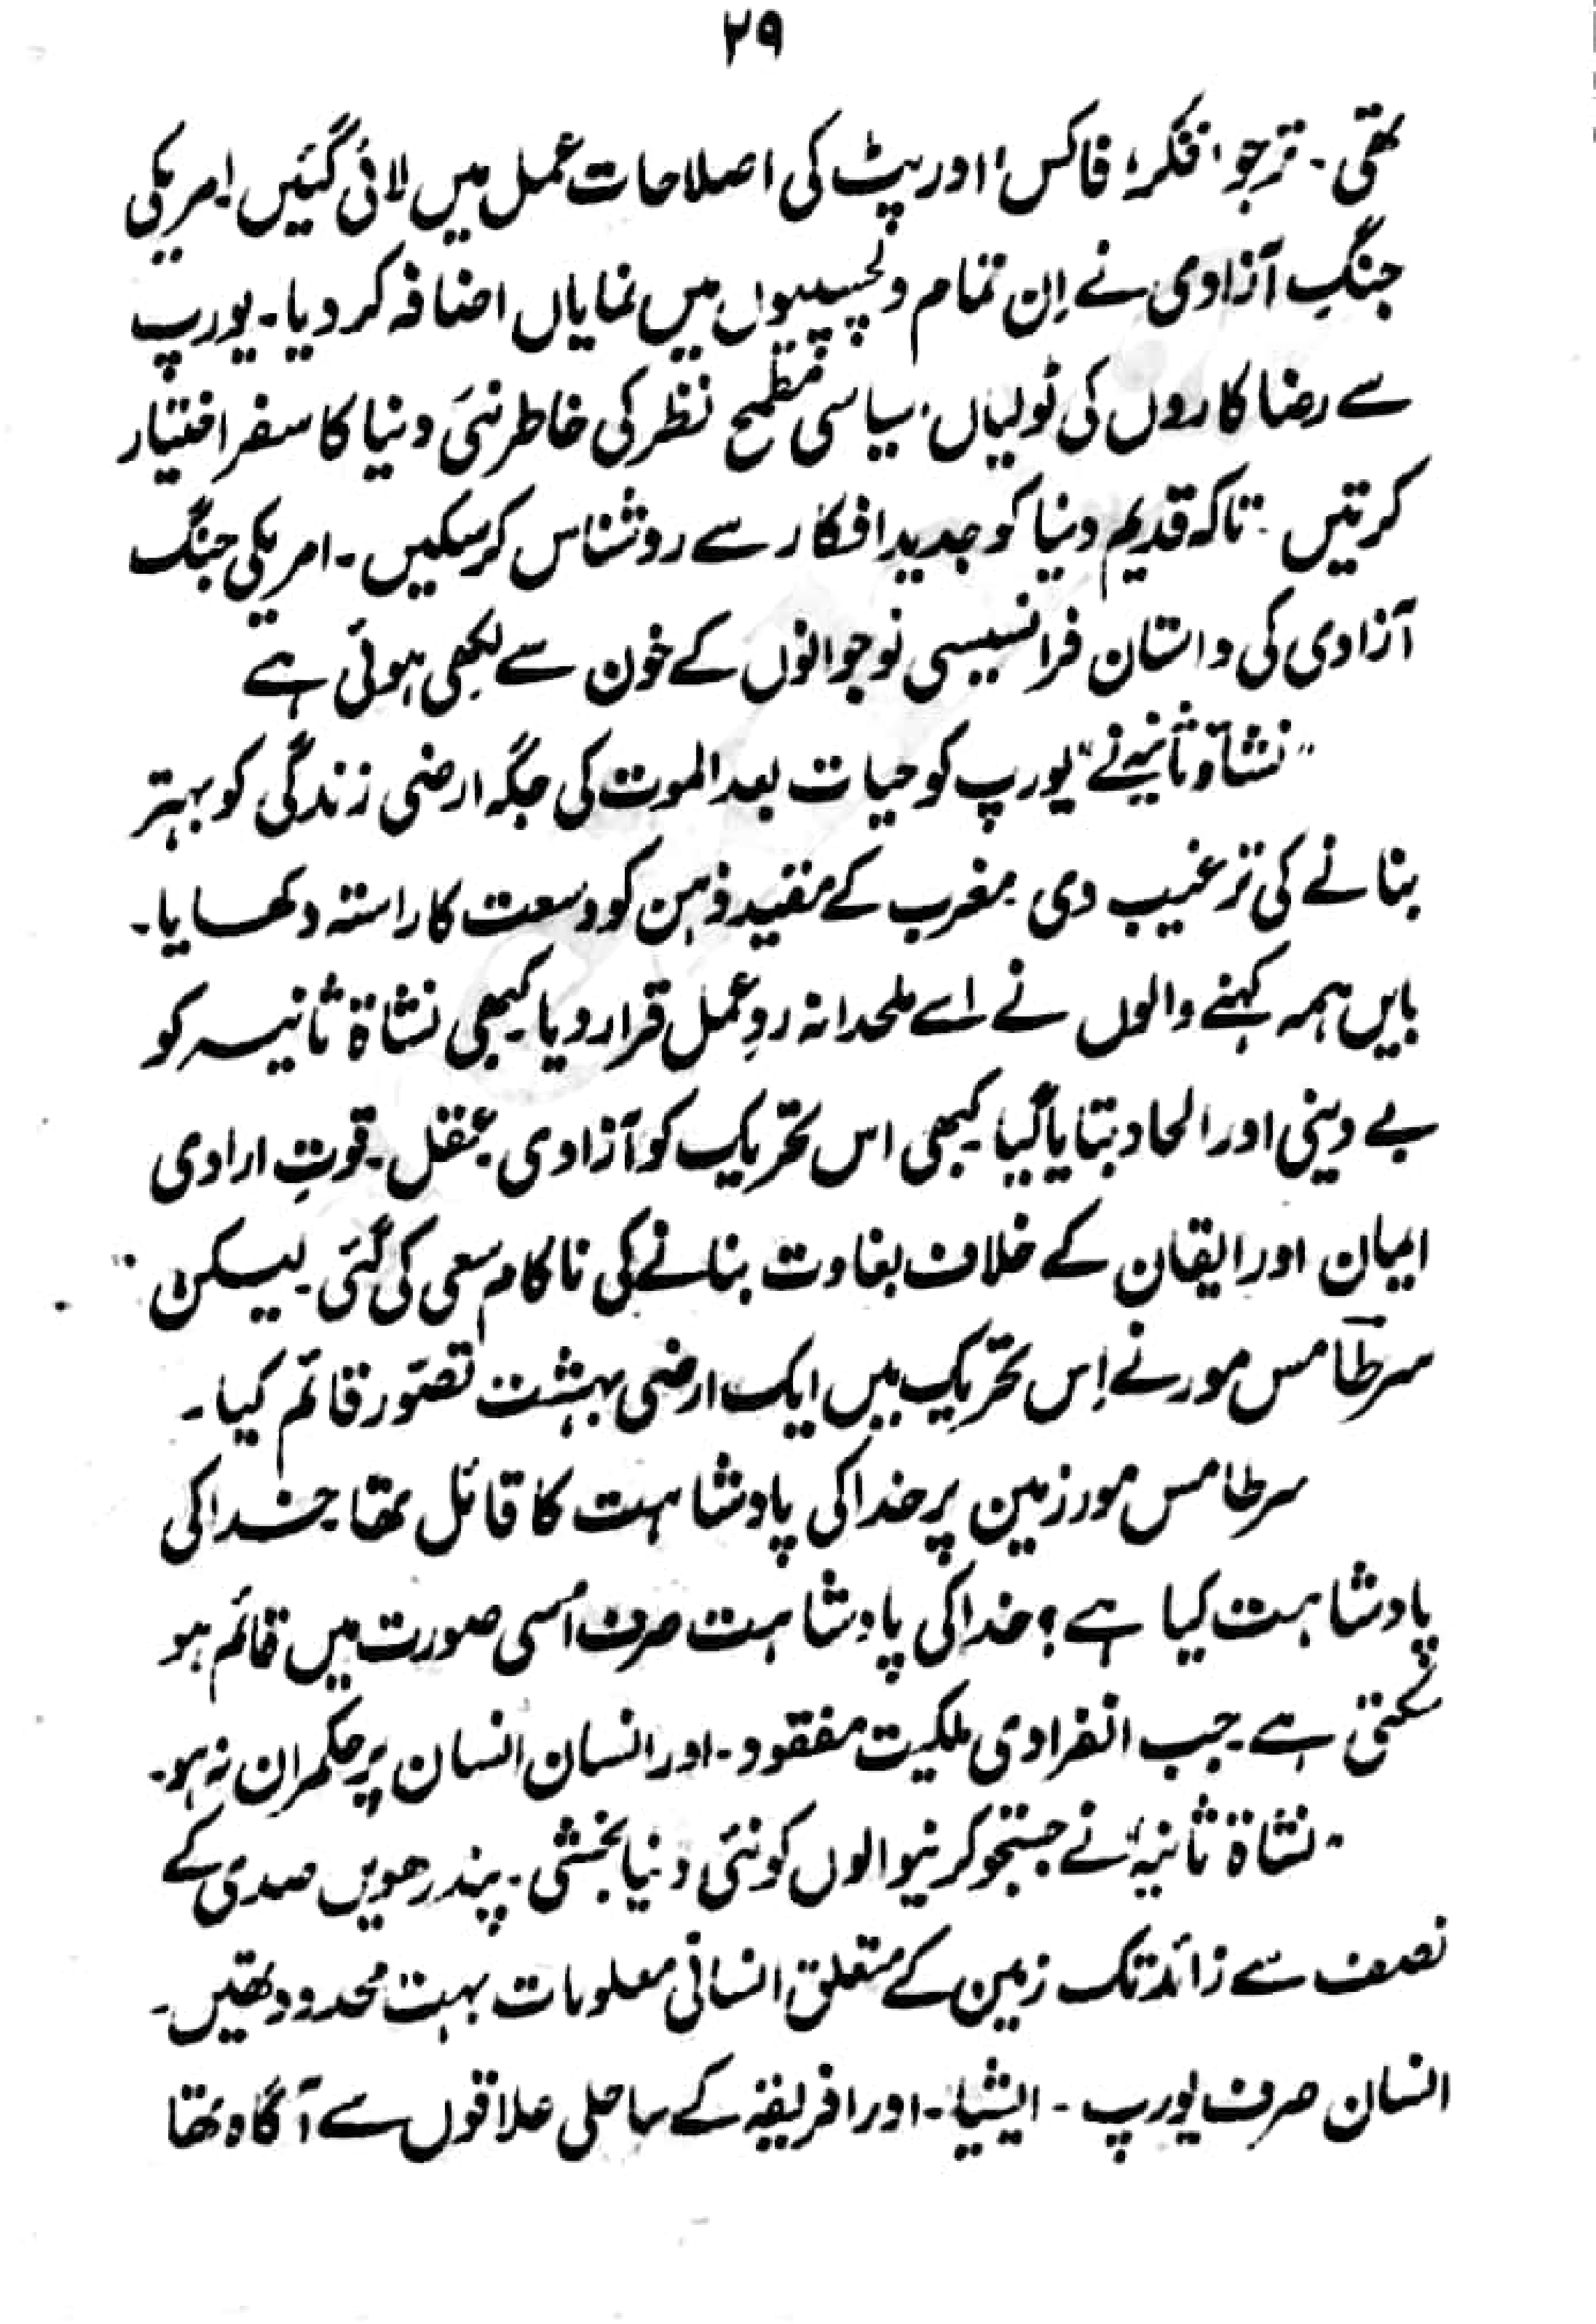 ۲۹
تھی۔ ترجو، فکر، فاکس، اور پٹ کی اصلاحات عمل میں لائی گئیں امریکی
جنگِ آزادی نے اِن تمام دلچسپیوں میں نمایاں اضافہ کر دیا۔ یورپ
سے رضا کاروں کی ٹولیاں، سیاسی مطمح نظر کی خاطر نئی دنیا کا سفر اختیار
کرتیں۔ تاکہ قدیم دنیا کو جدید افکار سے روشناس کر سکیں۔ امریکی جنگ
آزادی کی داستان فرانسیسی نوجوانوں کے خون سے لکھی ہوئی ہے
”نشاۃ ثانیہ نے“ یورپ کو حیات بعد الموت کی جگہ ارضی زندگی کو بہتر
بنانے کی ترغیب دی۔ مغرب کے مقید ذہن کو وسعت کا راستہ دکھایا۔
بایں ہمہ کہنے والوں نے اسے ملحدانہ ردِ عمل قرار دیا۔ کبھی نشاۃ ثانیہ کو
بے دینی اور الحاد بتایا گیا کبھی اس تحریک کو آزادی۔ عقل۔ قوتِ ارادی
ایمان اور ایقان کے خلاف بغاوت بنانے کی ناکام سعی کی گئی۔ لیکن
سر طامس مور نے اِس تحریک میں ایک ارضی بہشت تصوّر قائم کیا۔
سر طامس مور زمین پر خدا کی پادشاہت کا قائل تھا۔ خدا کی
پادشاہت کیا ہے؟ خدا کی پادشاہت صرف اُسی صورت میں قائم ہو
سکتی ہے۔ جب انفرادی ملکیت مفقود۔ اور انسان انسان پر حکمران نہ ہو۔
”نشاۃ ثانیہ“ نے جستجو کرنیوالوں کو نئی دنیا بخشی۔ پندرھویں صدی کے
نصف سے زائد تک زمین کے متعلق انسانی معلومات بہت محدود تھیں۔
انسان صرف یورپ۔ ایشیا۔ اور افریقہ کے ساحلی علاقوں سے آگاہ تھا